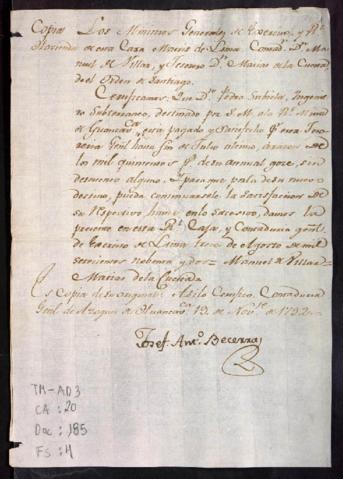 Copia Los Ministros Generales de Exercito, y Rl.
Hacienda de esta Caxa Matriz de Lima, Contad. Dn. Ma-
nuel de Villar, y Tesorero Dn. Matias de la Cuesta
del Orden de Santiago.
Certificamos, Que Dn. Pedro Subiela, Ingenie-
ro Subterraneo, destinado por S. M. a la Rl. Mina
de Guancav.ca está pagado y satisfecho pr. esta Teso-
reria Gral. hasta fin de Julio ultimo, á razon de
dos mil quinientos ps. de su annual goze, sin
descuento alguno. Y para que pase a su nuevo
destino, pueda continuarsele la satisfaccion de
su respectivo haver en lo sucesivo, damos la
presente en esta Rl. Caxa, y Contaduria gral.
de Exercito de Lima trece de Agosto de mil
setecientos noventa y dos = Manuel de Villar =
Matias de la Cuesta
Es Copia de su original: Asi lo Certifico. Contaduria
Pral. de Azogues de Huancav.ca 19 de Nove. de 1792
Josef Anto. Becerra
TM-AD3
CA: 20
Doc: 185
Fs: 4